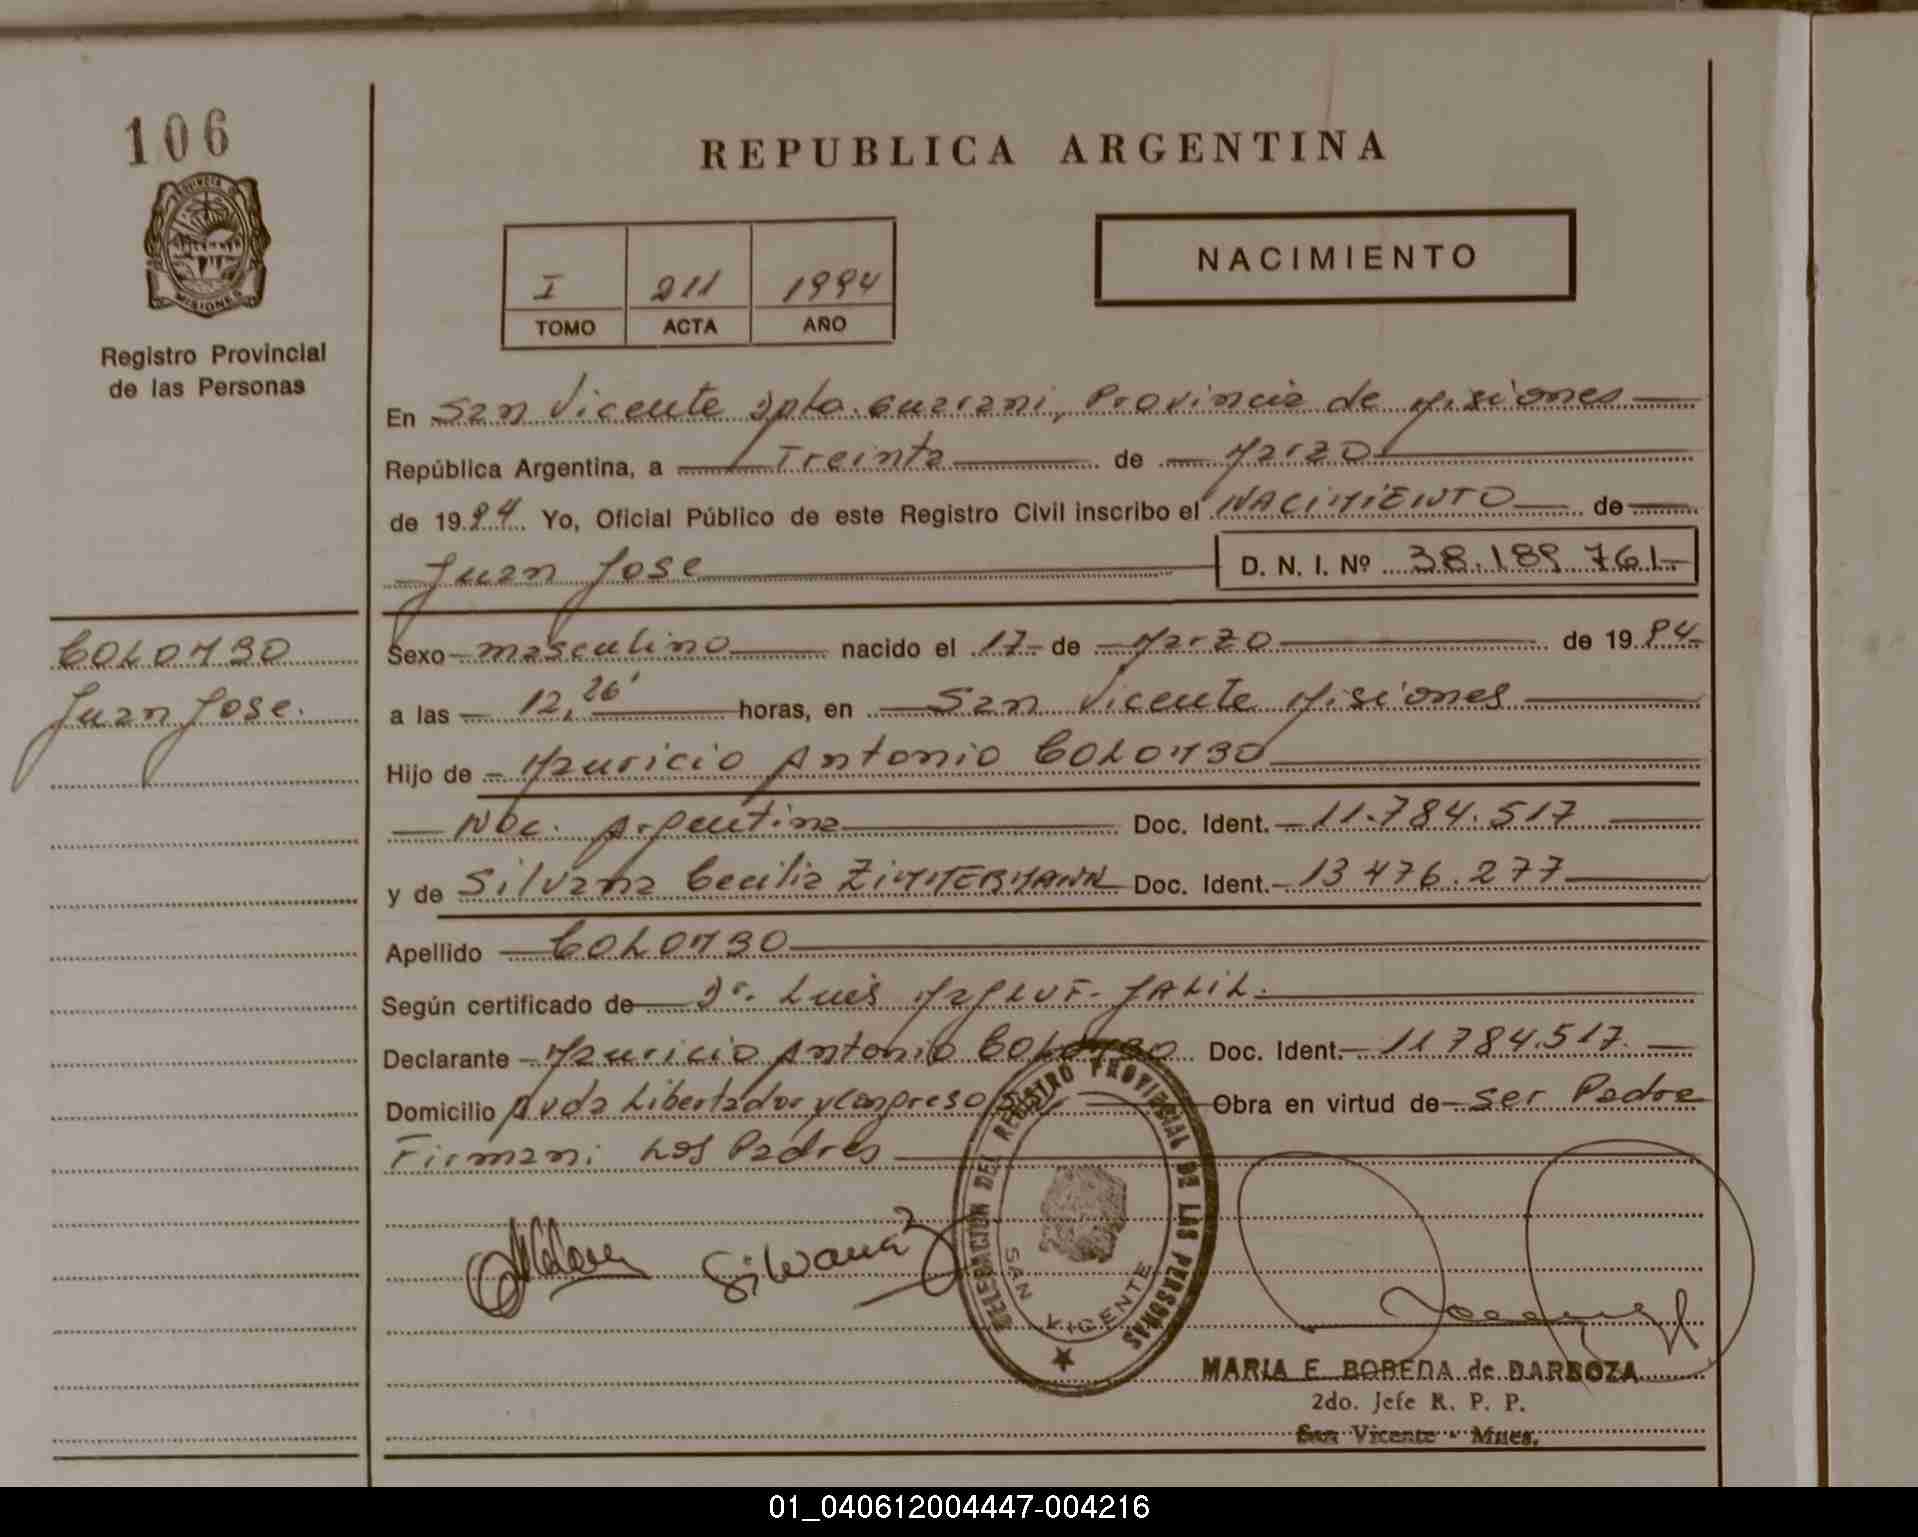 106
PROVINCIA DE
MISIONES
Registro Provincial
de las Personas
REPUBLICA ARGENTINA
I 211 1994
TOMO ACTA AÑO
NACIMIENTO
En San Vicente Dpto. Guarani, Provincia de Misiones
República Argentina, a Treinta de Marzo
de 1994 Yo, Oficial Público de este Registro Civil inscribo el NACIMIENTO de
Juan Jose D. N. I. Nº 38.189.761-
COLOMBO
Juan Jose.
Sexo masculino nacido el 17 de Marzo de 1994
a las 12,26' horas, en San Vicente Misiones
Hijo de Mauricio Antonio COLOMBO
Nac. Argentina Doc. Ident. 11.784.517
y de Silvana Cecilia ZIMMERMANN Doc. Ident. 13.476.277
Apellido COLOMBO
Según certificado de Dr. Luis JALIL.
Declarante Mauricio Antonio COLOMBO Doc. Ident. 11.784.517.
Domicilio Avda Libertador y Congreso Obra en virtud de ser Padre
Firman: Los Padres
Silvana
DELEGACION DEL REGISTRO PROVINCIAL DE LAS PERSONAS
SAN VICENTE
MARIA E. BOBEDA de BARBOZA
2do. Jefe R. P. P.
San Vicente - Mnes.
01_040612004447-004216